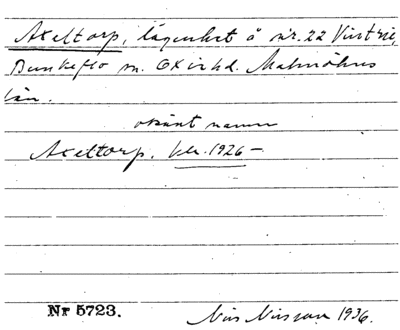 Axeltorp, lägenhet å nr. 22 Vintrie,
Bunkeflo sn. Oxie hd. Malmöhus
län.
okänt namn
Axeltorp. kr. 1926 –
Nr 5723. Nils Nilsson 1936.